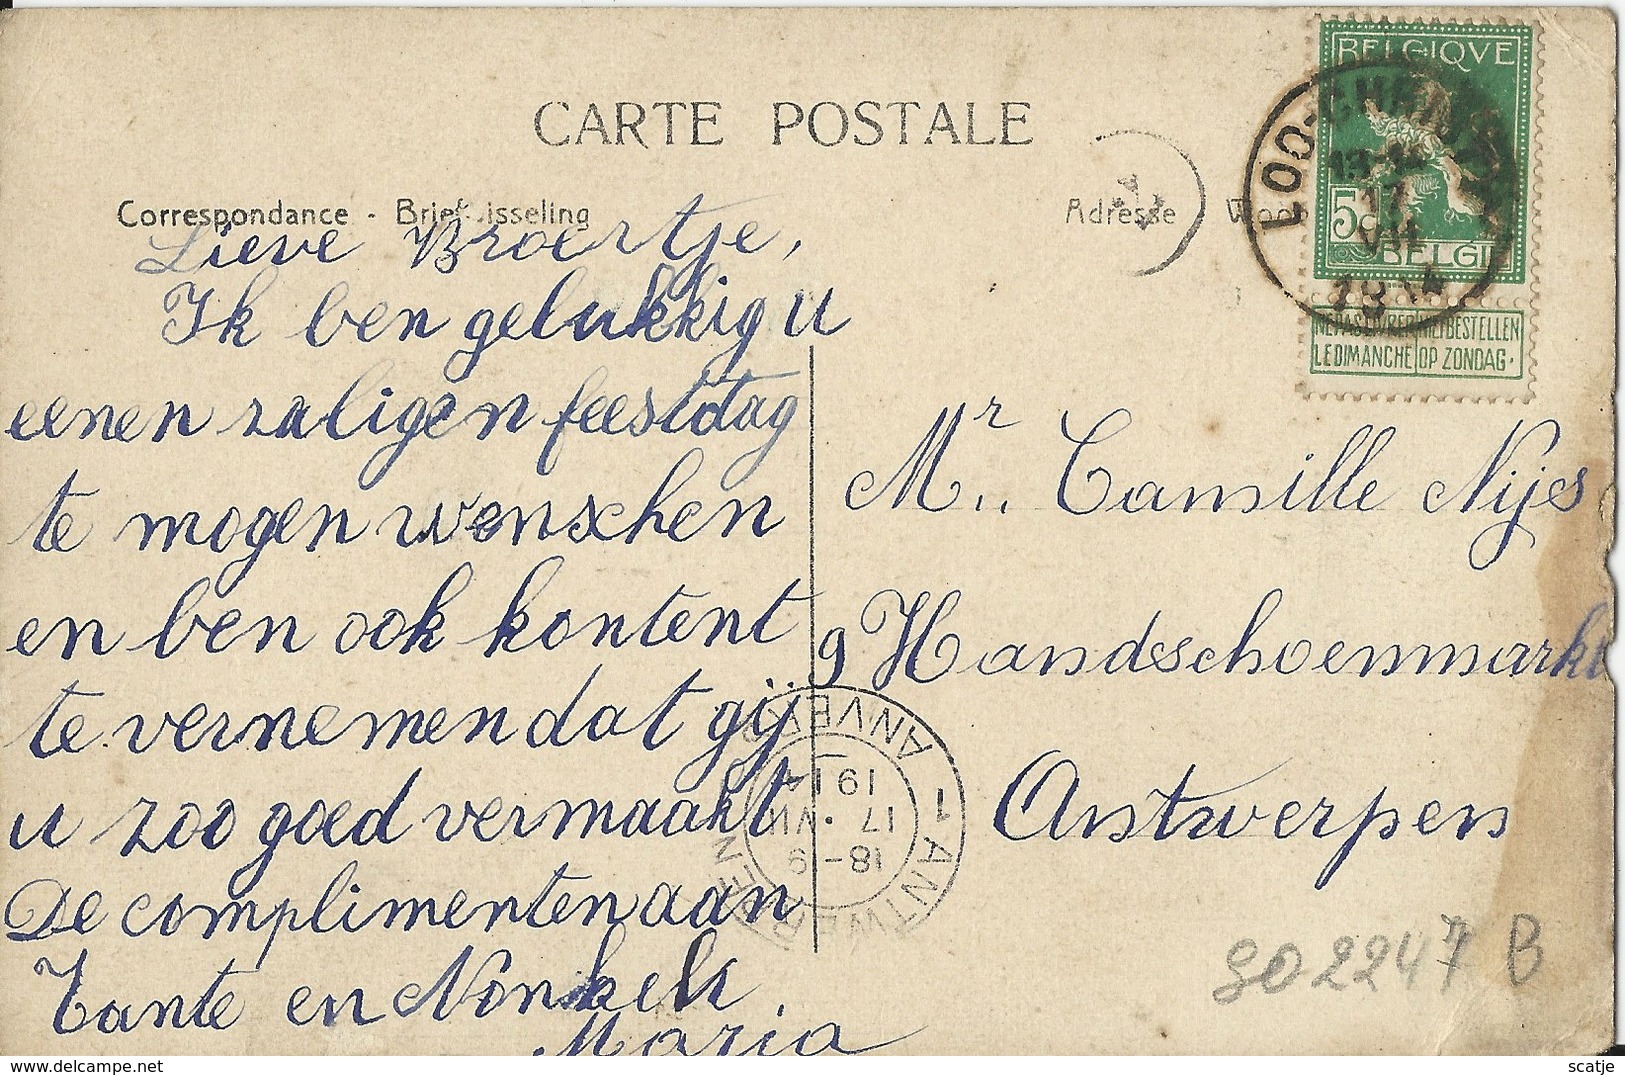 CARTE POSTALE
Correspondance - Briefwisseling
Adresse
BELGIQVE
5c
BELGIË
NE PAS LIVRER NIET BESTELLEN
LE DIMANCHE OP ZONDAG.
17
VII
1914
Lieve Broertje,
Ik ben gelukkig u
eenen zaligen feestdag
te mogen wenschen
en ben ook kontent
te vernemen dat gij
u zoo goed vermaakt
De complimenten aan
Tante en Nonkels.
Maria
Mr. Camille Nijs
9 Handschoenmarkt
Antwerpen
1 ANTWERPEN
18-19
17 · VII
1914
ANVERS
SO2247 B
delcampe.net
scatje